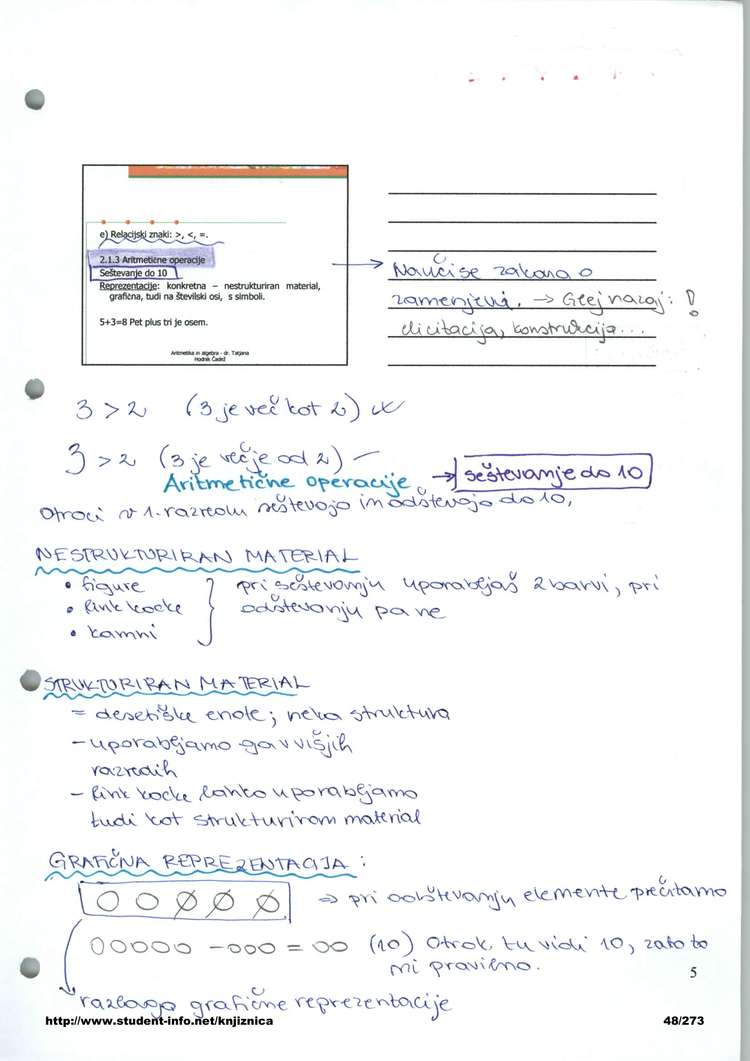 e) Relacijski znaki: >, <, =.
2.1.3 Aritmetične operacije
Seštevanje do 10
Reprezentacije: konkretna – nestrukturiran material,
grafična, tudi na številski osi, s simboli.
5+3=8 Pet plus tri je osem.
Aritmetika in algebra - dr. Tatjana
Hodnik Čadež
Nauči se zakona o
zamenjavi. → Glej nazaj: !
elicitacija, konstrukcija...
3 > 2 (3 je več kot 2)
3 > 2 (3 je večje od 2) –
Aritmetične operacije → seštevanje do 10
Otroci v 1. razredu seštevajo in odštevajo do 10,
NESTRUKTURIRAN MATERIAL
• figure
• link kocke
• kamni
pri seštevanju uporabljaš 2 barvi, pri
odštevanju pa ne
STRUKTURIRAN MATERIAL
= desetiške enote; neka struktura
- uporabljamo ga v višjih
razredih
- link kocke lahko uporabljamo
tudi kot strukturiran material
GRAFIČNA REPREZENTACIJA:
⇒ pri odštevanju elemente prečrtamo
00000 - 000 = 00 (10) Otrok tu vidi 10, zato to
ni pravilno.
razlaga grafične reprezentacije
5
http://www.student-info.net/knjiznica
48/273